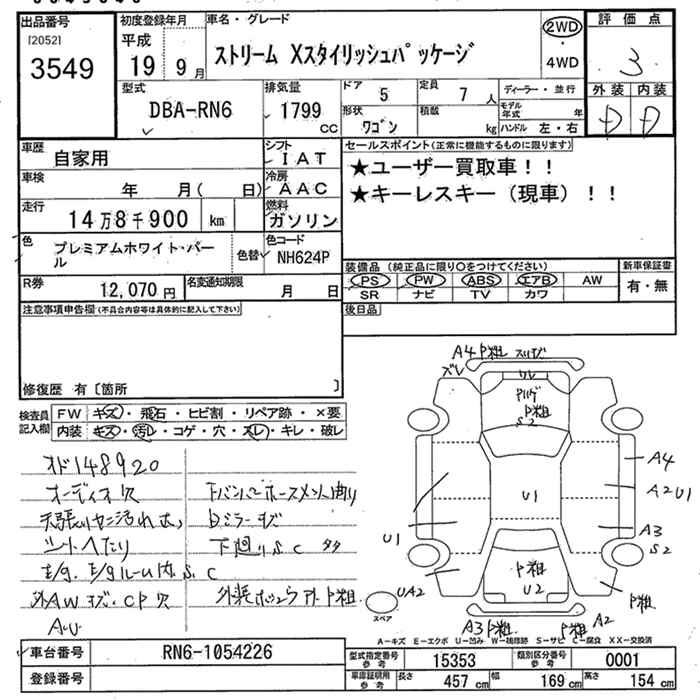 出品番号
[2052]
3549
初度登録年月
平成
19 9月
車名・グレード
ストリーム Xスタイリッシュパッケージ
2WD
・
4WD
評価点
3
外装 内装
D D
型式
DBA-RN6
排気量
1799
cc
ドア
5
定員
7 人
形状
ワゴン
積載
kg
ディーラー・並行
モデル年式
年
ハンドル 左・右
車歴
自家用
シフト
IAT
車検
年 月( 日)
冷房
AAC
走行
14万8千900 km
燃料
ガソリン
色
プレミアムホワイト・パール
色替
色コード
NH624P
R券
12,070円
名変通知期限
月 日
セールスポイント(正常に機能するものに限ります)
★ユーザー買取車!!
★キーレスキー(現車)!!
装備品 (純正品に限り○をつけてください)
新車保証書
PS PW ABS エアB AW
有・無
SR ナビ TV カワ
後日品
注意事項申告欄(不具合内容等は具体的に記入して下さい)
修復歴 有〔箇所 〕
検査員記入欄
FW キズ・飛石・ヒビ割・リペア跡・×要
内装 キズ・汚レ・コゲ・穴・スレ・キレ・破レ
オド148920
オーディオ欠
天張りヤニ汚れ大
シートヘたり
E/g. E/gルーム内S.C
外AWキズ.CP欠
AU
Fバンパーホースメント曲り
Bミラーキズ
下廻りS.C タタ
A4 P粗 スリキズ
ズレ
ワレ
P粗
S2
U1
U1
P粗
U2
A4
A2 U1
A3
S2
UA2
スペア
A3 P粗
P粗 A2
P粗
A-キズ E-エクボ U-凹み W-補修跡 S-サビ C-腐食 XX-交換済
車台番号
RN6-1054226
登録番号
型式指定番号
参考
15353
類別区分番号
参考
0001
車庫証明用
参考
長さ 457 cm
幅 169 cm
高さ 154 cm